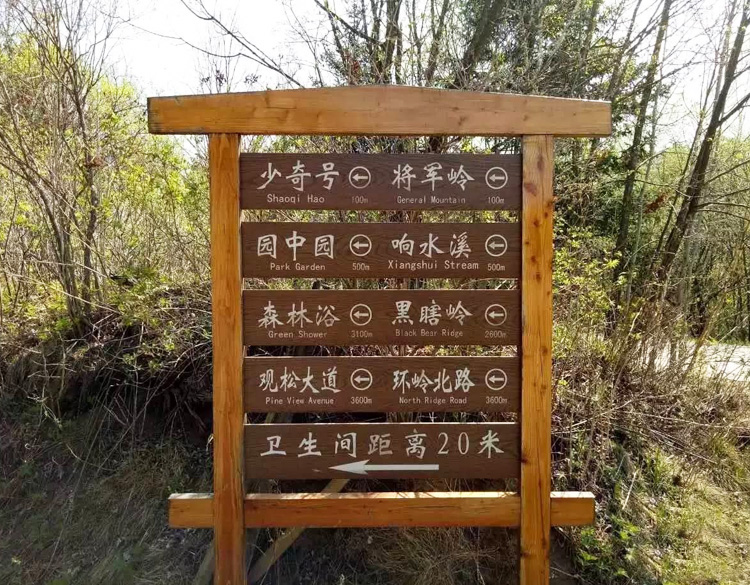 少奇号 将军岭
Shaoqi Hao 100m General Mountain 100m
园中园 响水溪
Park Garden 500m Xiangshui Stream 500m
森林浴 黑瞎岭
Green Shower 3100m Black Bear Ridge 2600m
观松大道 环岭北路
Pine View Avenue 3600m North Ridge Road 3600m
卫生间距离20米